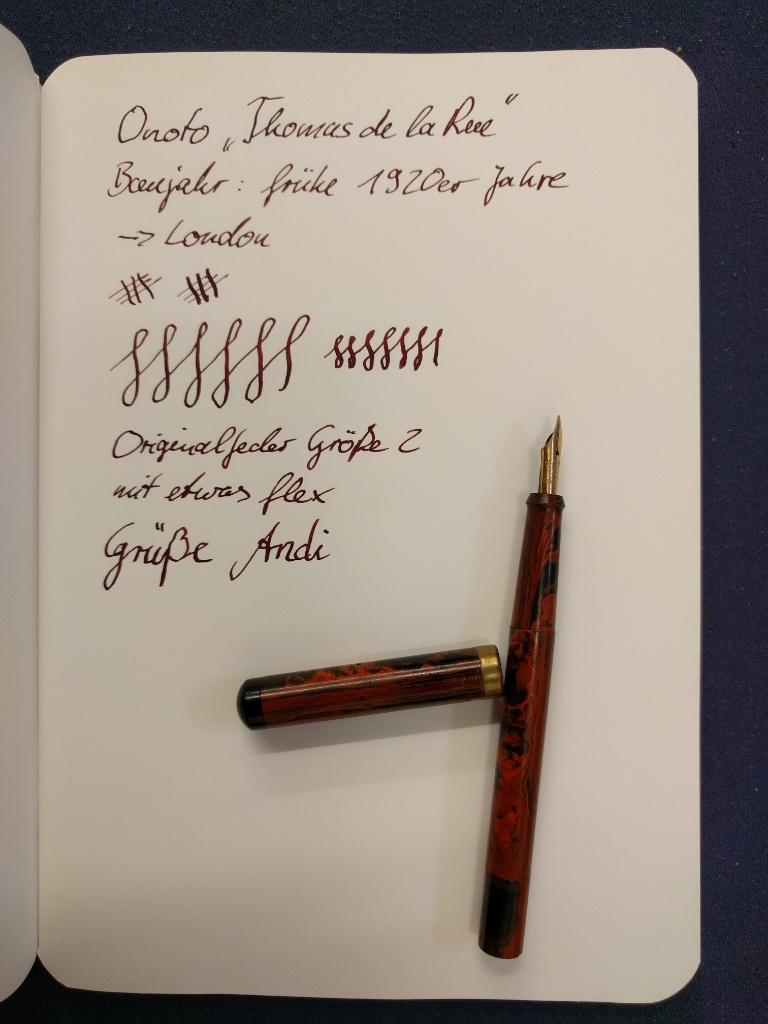 Onoto „Thomas de la Rue“
Baujahr: frühe 1920er Jahre
-> London
Originalfeder Größe 2
mit etwas flex
Grüße Andi